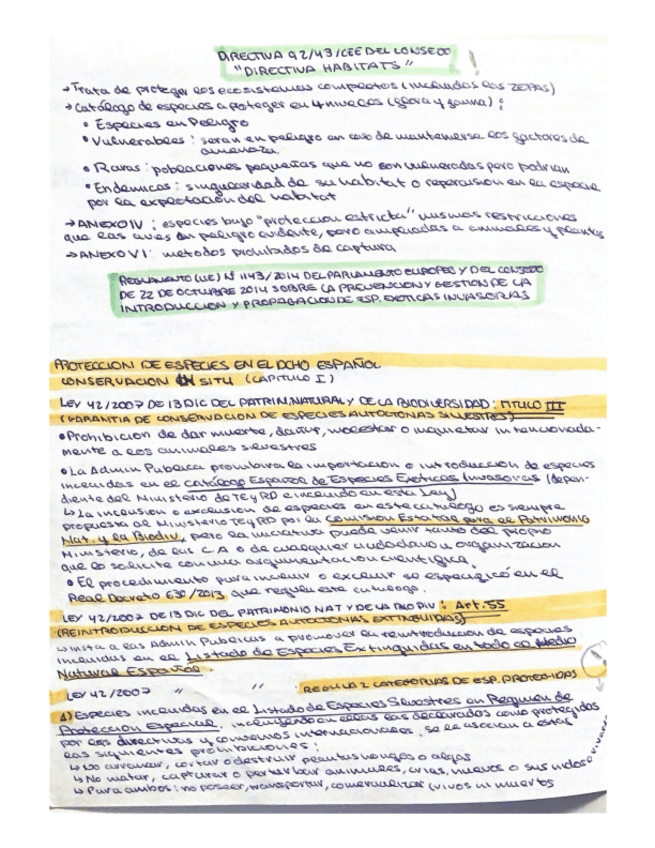 DIRECTIVA 92/43/CEE DEL CONSEJO
"DIRECTIVA HABITATS" !
→Trata de proteger los ecosistemas completos (incluidas las ZEPAS)
→Catálogo de especies a proteger en 4 niveles (flora y fauna):
• Especies en Peligro
• Vulnerables: serán en peligro en caso de mantenerse los factores de
amenaza.
• Raras: poblaciones pequeñas que no son vulneradas pero podrían
• Endémicas: singularidad de su habitat o repercusion en la especie
por la explotación del habitat
→ANEXO IV: especies bajo "protección estricta" mismas restricciones
que las aves en peligro evidente, pero ampliadas a animales y plantas
→ANEXO VI: metodos prohibidos de captura
REGLAMENTO (UE) Nº 1143/2014 DEL PARLAMENTO EUROPEO Y DEL CONSEJO
DE 22 DE OCTUBRE 2014 SOBRE LA PREVENCION Y GESTION DE LA
INTRODUCCION Y PROPAGACION DE ESP. EXOTICAS INVASORAS
PROTECCION DE ESPECIES EN EL DCHO ESPAÑOL
CONSERVACION IN SITU (CAPITULO I)
LEY 42/2007 DE 13 DIC DEL PATRIM. NATURAL Y DE LA BIODIVERSIDAD: TITULO III
(GARANTIA DE CONSERVACION DE ESPECIES AUTOCTONAS SILVESTRES)
•Prohibicion de dar muerte, dañar, molestar o inquietar intencionada-
mente a los animales silvestres
•La Admin Publica prohibira la importacion o introduccion de especies
incluidas en el Catálogo Español de Especies Exoticas Invasoras (depen-
diente del Ministerio de TE y RD e incluido en esta Ley)
↳La inclusion o exclusion de especies en este catalogo es siempre
propuesta al Ministerio TE y RD por la Comision Estatal para el Patrimonio
Nat. y la Biodiv, pero la iniciativa puede venir tanto del propio
Ministerio, de las C.A o de cualquier ciudadano u organizacion
que lo solicite con una argumentacion cientifica.
• El procedimiento para incluir o excluir se especificó en el
Real Decreto 630/2013, que regula este catalogo.
LEY 42/2007 DE 13 DIC DEL PATRIMONIO NAT Y DE LA BIODIV: Art. 55
(REINTRODUCCION DE ESPECIES AUTOCTONAS EXTINGUIDAS)
↳insta a las Admin Publicas a promover la reintroduccion de especies
incluidas en el Listado de Especies Extinguidas en todo el Medio
Natural Español.
LEY 42/2007 " " : REGULA 2 CATEGORIAS DE ESP. PROTEGIDAS
1) Especies incluidas en el Listado de Especies Silvestres en Regimen de
Protección Especial, incluyendo en ellas las declaradas como protegidas
por las directivas y convenios internacionales, se le asocian a estas
las siguientes prohibiciones:
↳ No arrancar, cortar o destruir plantas hongos o algas
↳ No matar, capturar o perturbar animales, crias, huevos o sus nidos
↳ Para ambos: no poseer, transportar, comercializar (vivos ni muertos